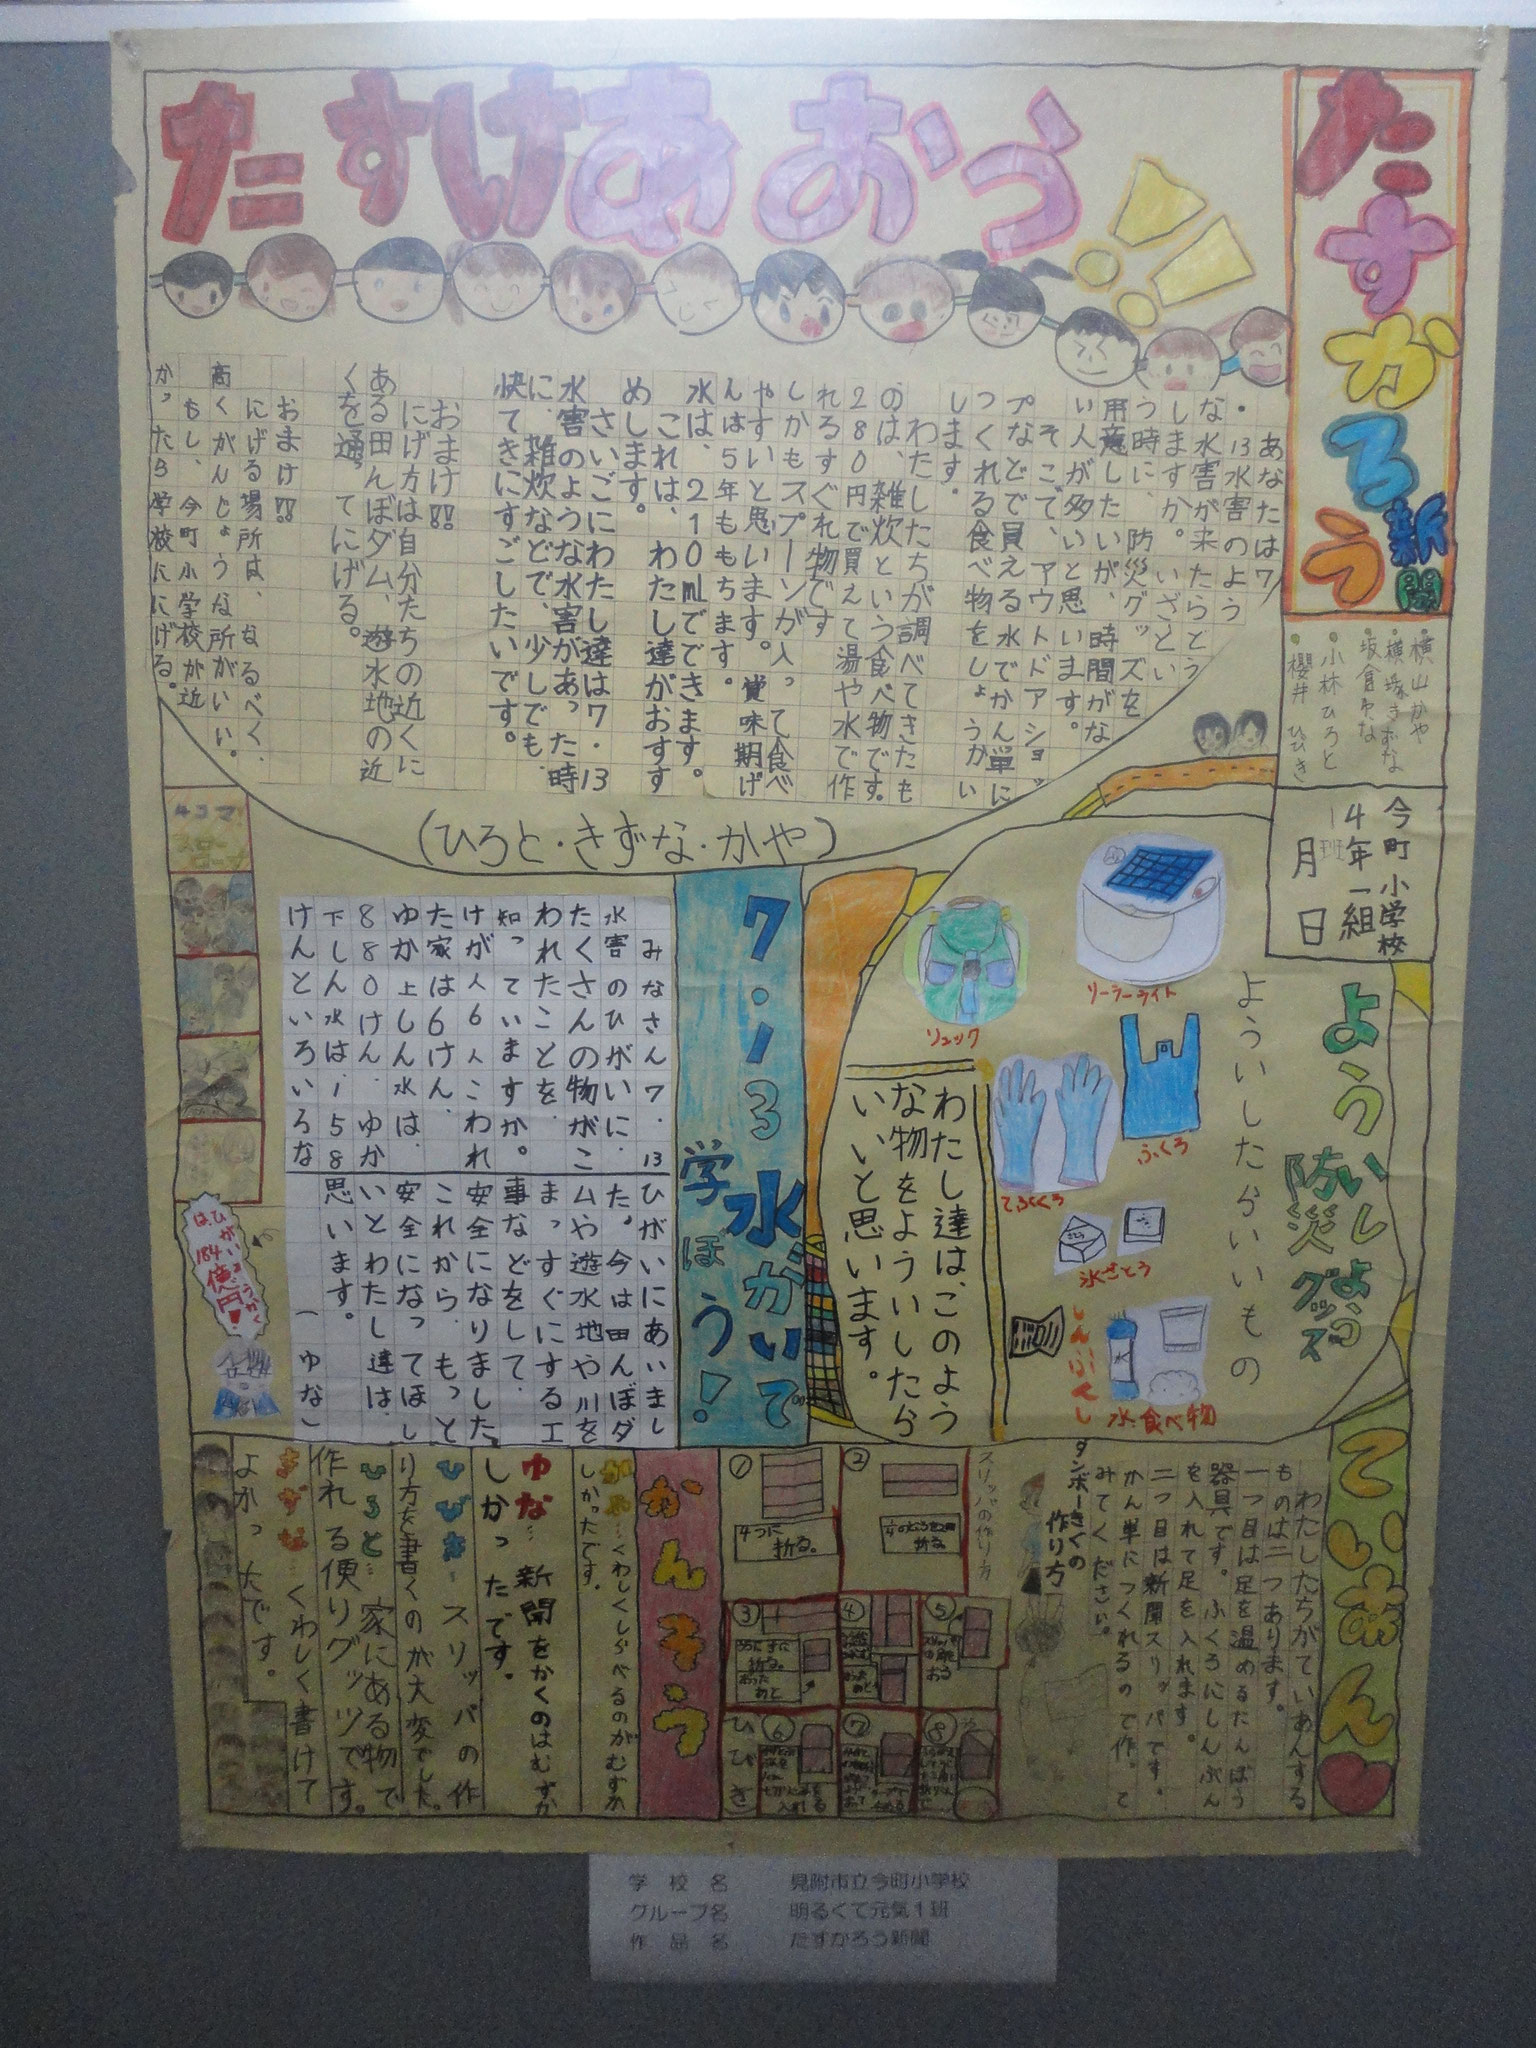 たすけあおう!!
たすかろう新聞
横山かや
小林ひろと
櫻井ひびき
今町小学校
4年一組
1班
月 日
あなたは7/
13水害のよう
な水害が来たらどう
しますか。いざとい
う時に、防災グッズを
用意したいが、時間がな
い人が多いと思います。
そこで、アウトドアショッ
プなどで買える水でかん単に
つくれる食べ物をしょうかい
します。
わたしたちが調べてきたも
のは、雑炊という食べ物です。
280円で買えて湯や水で作
れるすぐれ物です
しかもスプーンが入って食べ
やすいと思います。賞味期げ
んは5年ももちます。
水は、210mlでできます。
これは、わたし達がおすす
めします。
さいごにわたし達は7・13
水害のような水害があった時
に、雑炊などで、少しでも、
快てきにすごしたいです。
おまけ!!
にげ方は自分たちの近くに
ある田んぼダム、遊水地の近
くを通ってにげる。
おまけ!!
にげる場所は、なるべく、
高くがんじょうな所がいい。
もし、今町小学校が近
かったら学校ににげる。
(ひろと・きずな・かや)
よういしよう
防災グッズ
よういしたらいいもの
ソーラーライト
リュック
ふくろ
てぶくろ
氷ざとう
しんぶんし
水・食べ物
わたし達は、このよう
な物をよういしたら
いいと思います。
7・13水がいで
学ぼう!
みなさん7・13
水害のひがいに、
たくさんの物がこ
われたことを、
知っていますか。
けが人6人こわれ
た家は6けん、
ゆか上しん水は、
880けん、ゆか
下しん水は、158
けんといろいろな
ひがいにあいまし
た。今は田んぼダ
ムや遊水地や川を
まっすぐにするエ
事などをして、
安全になりました
これから、もっと
安全になってほし
いとわたし達は、
思います。
(ゆな)
4コマ!
スローローガ
ひがいそうがく
は、184億円!
ていあん
わたしたちがていあんする
ものは二つあります。
一つ目は足を温めるだんぼう
器具です。ふくろにしんぶん
を入れて足を入れます。
二つ目は新聞スリッパです。
かん単につくれるので作って
みてください。
ダンボーきぐの
作り方
スリッパの作り方
①
4つに
折る。
②
折る。
③
折る。
④
⑤
おる
⑥
入れる
⑦
⑧
ひびき
かんそう
かや…くわしくしらべるのがむずか
しかったです。
ゆな…新聞をかくのはむずか
しかったです。
ひびき…スリッパの作
り方を書くのが大変でした。
ひろと…家にある物で
作れる便りグッツです。
きずな…くわしく書けて
よかったです。
学校名 見附市立今町小学校
グループ名 明るくて元気1班
作品名 たすかろう新聞